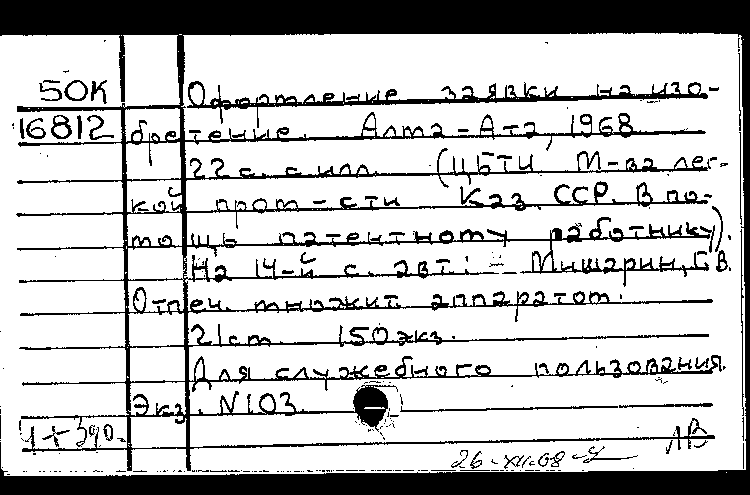 50К Оформление заявки на изо-
16812 бретение. Алма-Ата, 1968
22 с. с илл. (ЦБТИ М-ва лег-
кой пром-сти Каз. ССР. В по-
мощь патентному работнику).
На 14-й с. авт.: Мишарин, Г.В.
Отпеч. множит. аппаратом.
21см. 150экз.
Для служебного пользования.
Экз. N103.